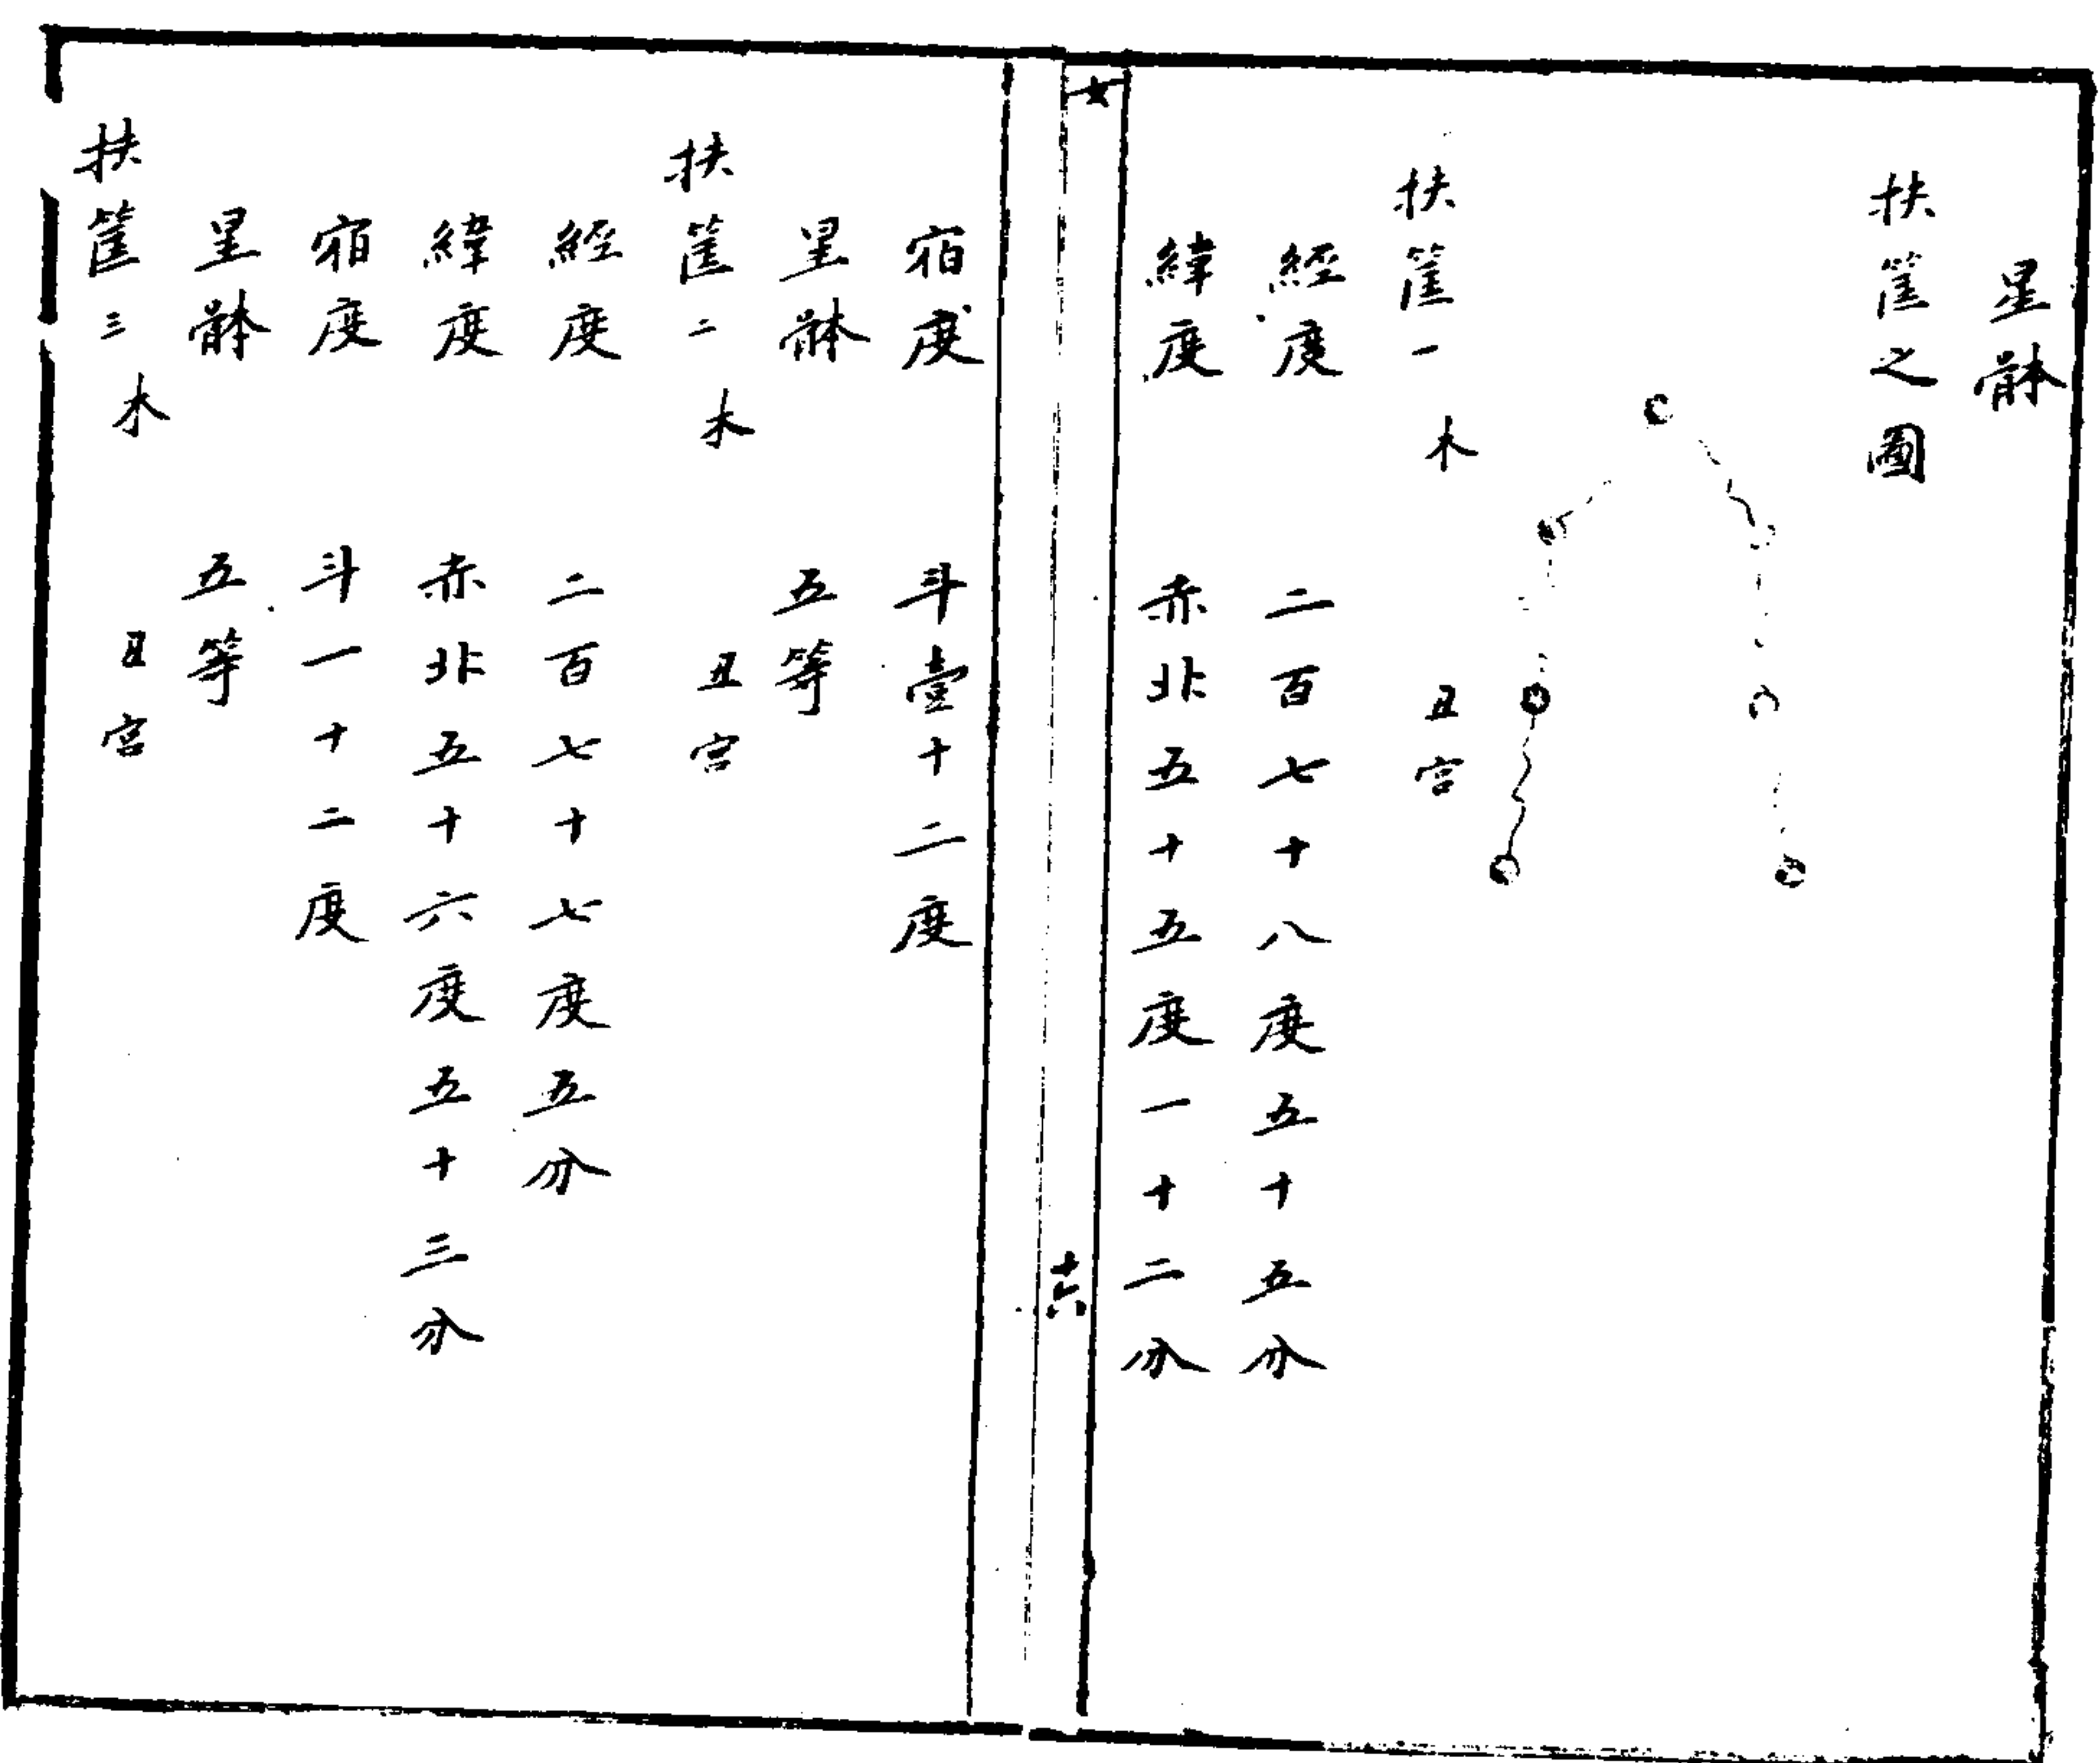 星體
扶筐之圖
扶筐一 木 丑宮
經度 二百七十八度五十五分
緯度 赤北五十五度一十二分
十六
宿度 斗壹十二度
星體 五等
扶筐二 木 丑宮
經度 二百七十七度五分
緯度 赤北五十六度五十三分
宿度 斗一十二度
星體 五等
扶筐三 木 丑宮